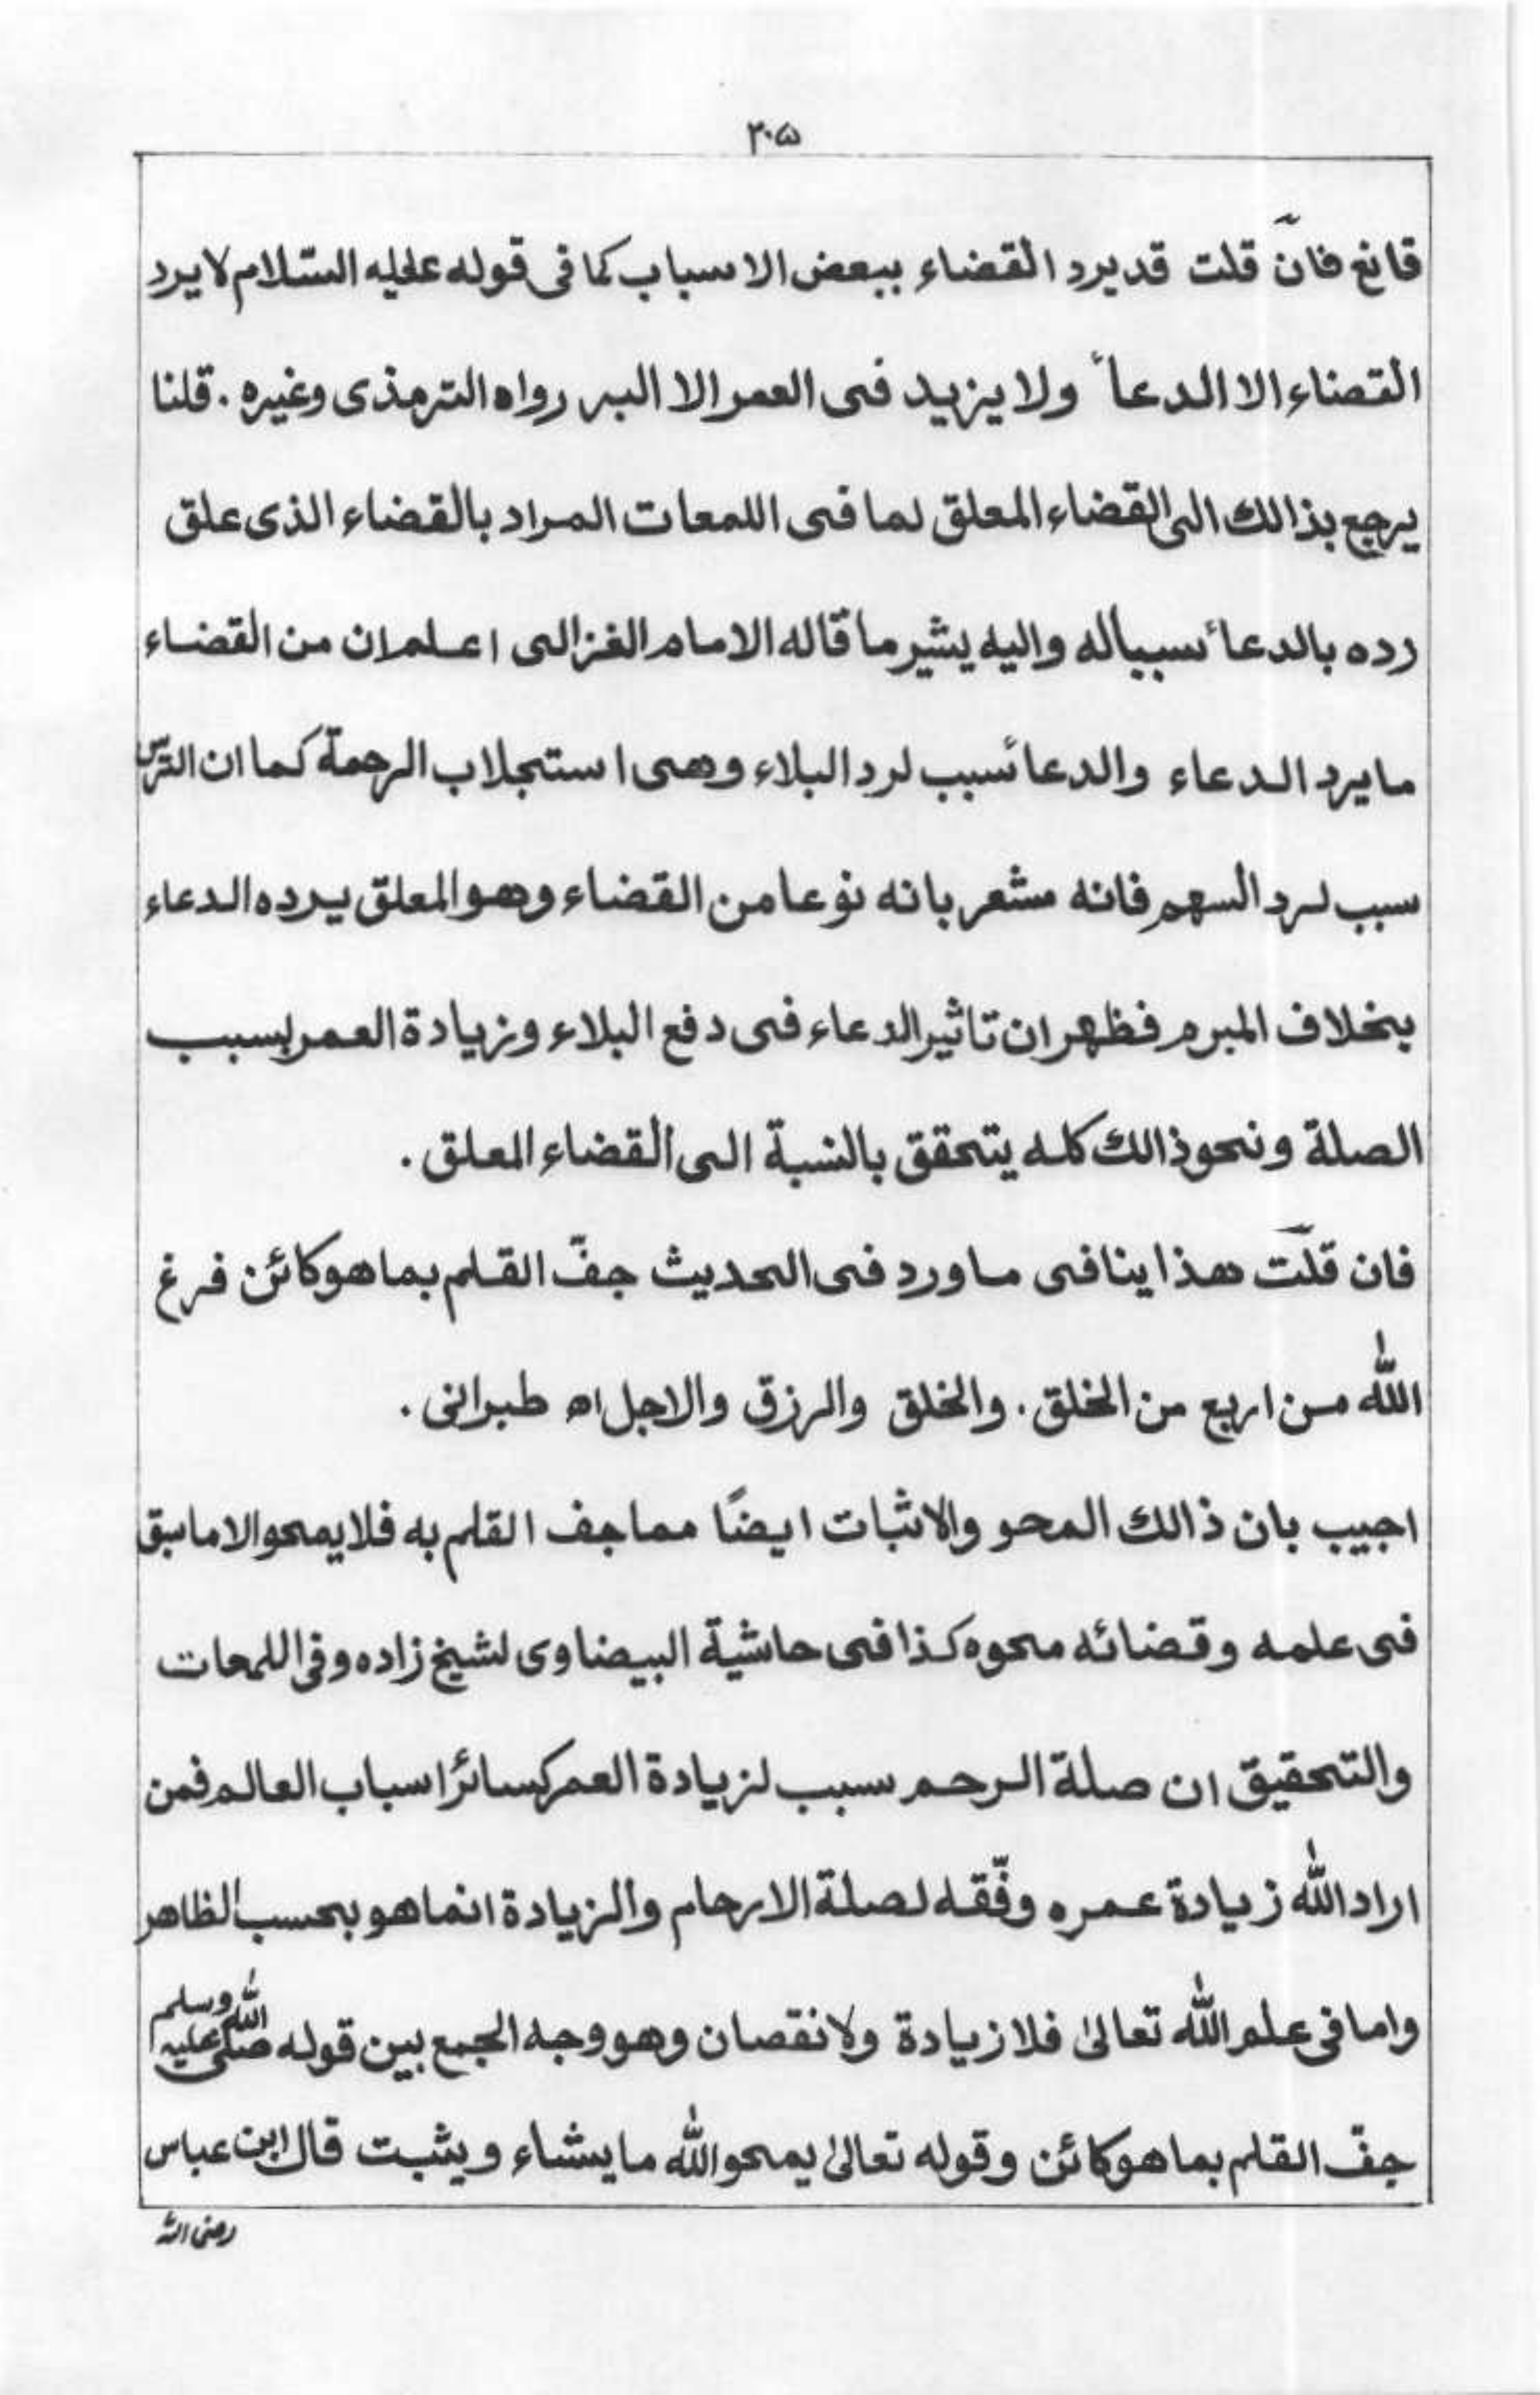 ۳۰۵
قانغ فان قلت قد يرد القضاء ببعض الاسباب كما فى قوله عليه السّلام لا يرد
القضاء الا الدعأ ولا يزيد فى العمر الا البر رواه الترمذى وغيره . قلنا
يرجع بذالك الى القضاء المعلق لما فى اللمعات المراد بالقضاء الذى علق
رده بالدعأ سبباله واليه يشير ما قاله الامام الغزالى اعلم ان من القضاء
ما يرد الدعاء والدعأ سبب لرد البلاء وهى استجلاب الرحمة كما ان الترس
سبب لرد السهم فانه مشعر بانه نوعا من القضاء وهو المعلق يرده الدعاء
بخلاف المبرم فظهر ان تاثير الدعاء فى دفع البلاء وزيادة العمر بسبب
الصلة ونحو ذالك كله يتحقق بالنسبة الى القضاء المعلق .
فان قلت هذا ينافى ما ورد فى الحديث جفّ القلم بما هو كائن فرغ
الله من اربع من الخلق . والخلق والرزق والاجل اه طبرانى .
اجيب بان ذالك المحو والاثبات ايضًا مما جف القلم به فلا يمحو الا ما سبق
فى علمه وقضائه محوه كذا فى حاشية البيضاوى لشيخ زاده وفى اللمعات
والتحقيق ان صلة الرحم سبب لزيادة العمر كسائر اسباب العالم فمن
اراد الله زيادة عمره وفّقه لصلة الارحام والزيادة انما هو بحسب الظاهر
واما فى علم الله تعالىٰ فلا زيادة ولا نقصان وهو وجه الجمع بين قوله صلى الله عليه وسلم
جفّ القلم بما هو كائن وقوله تعالىٰ يمحو الله ما يشاء ويثبت قال ابن عباس
رضى الله